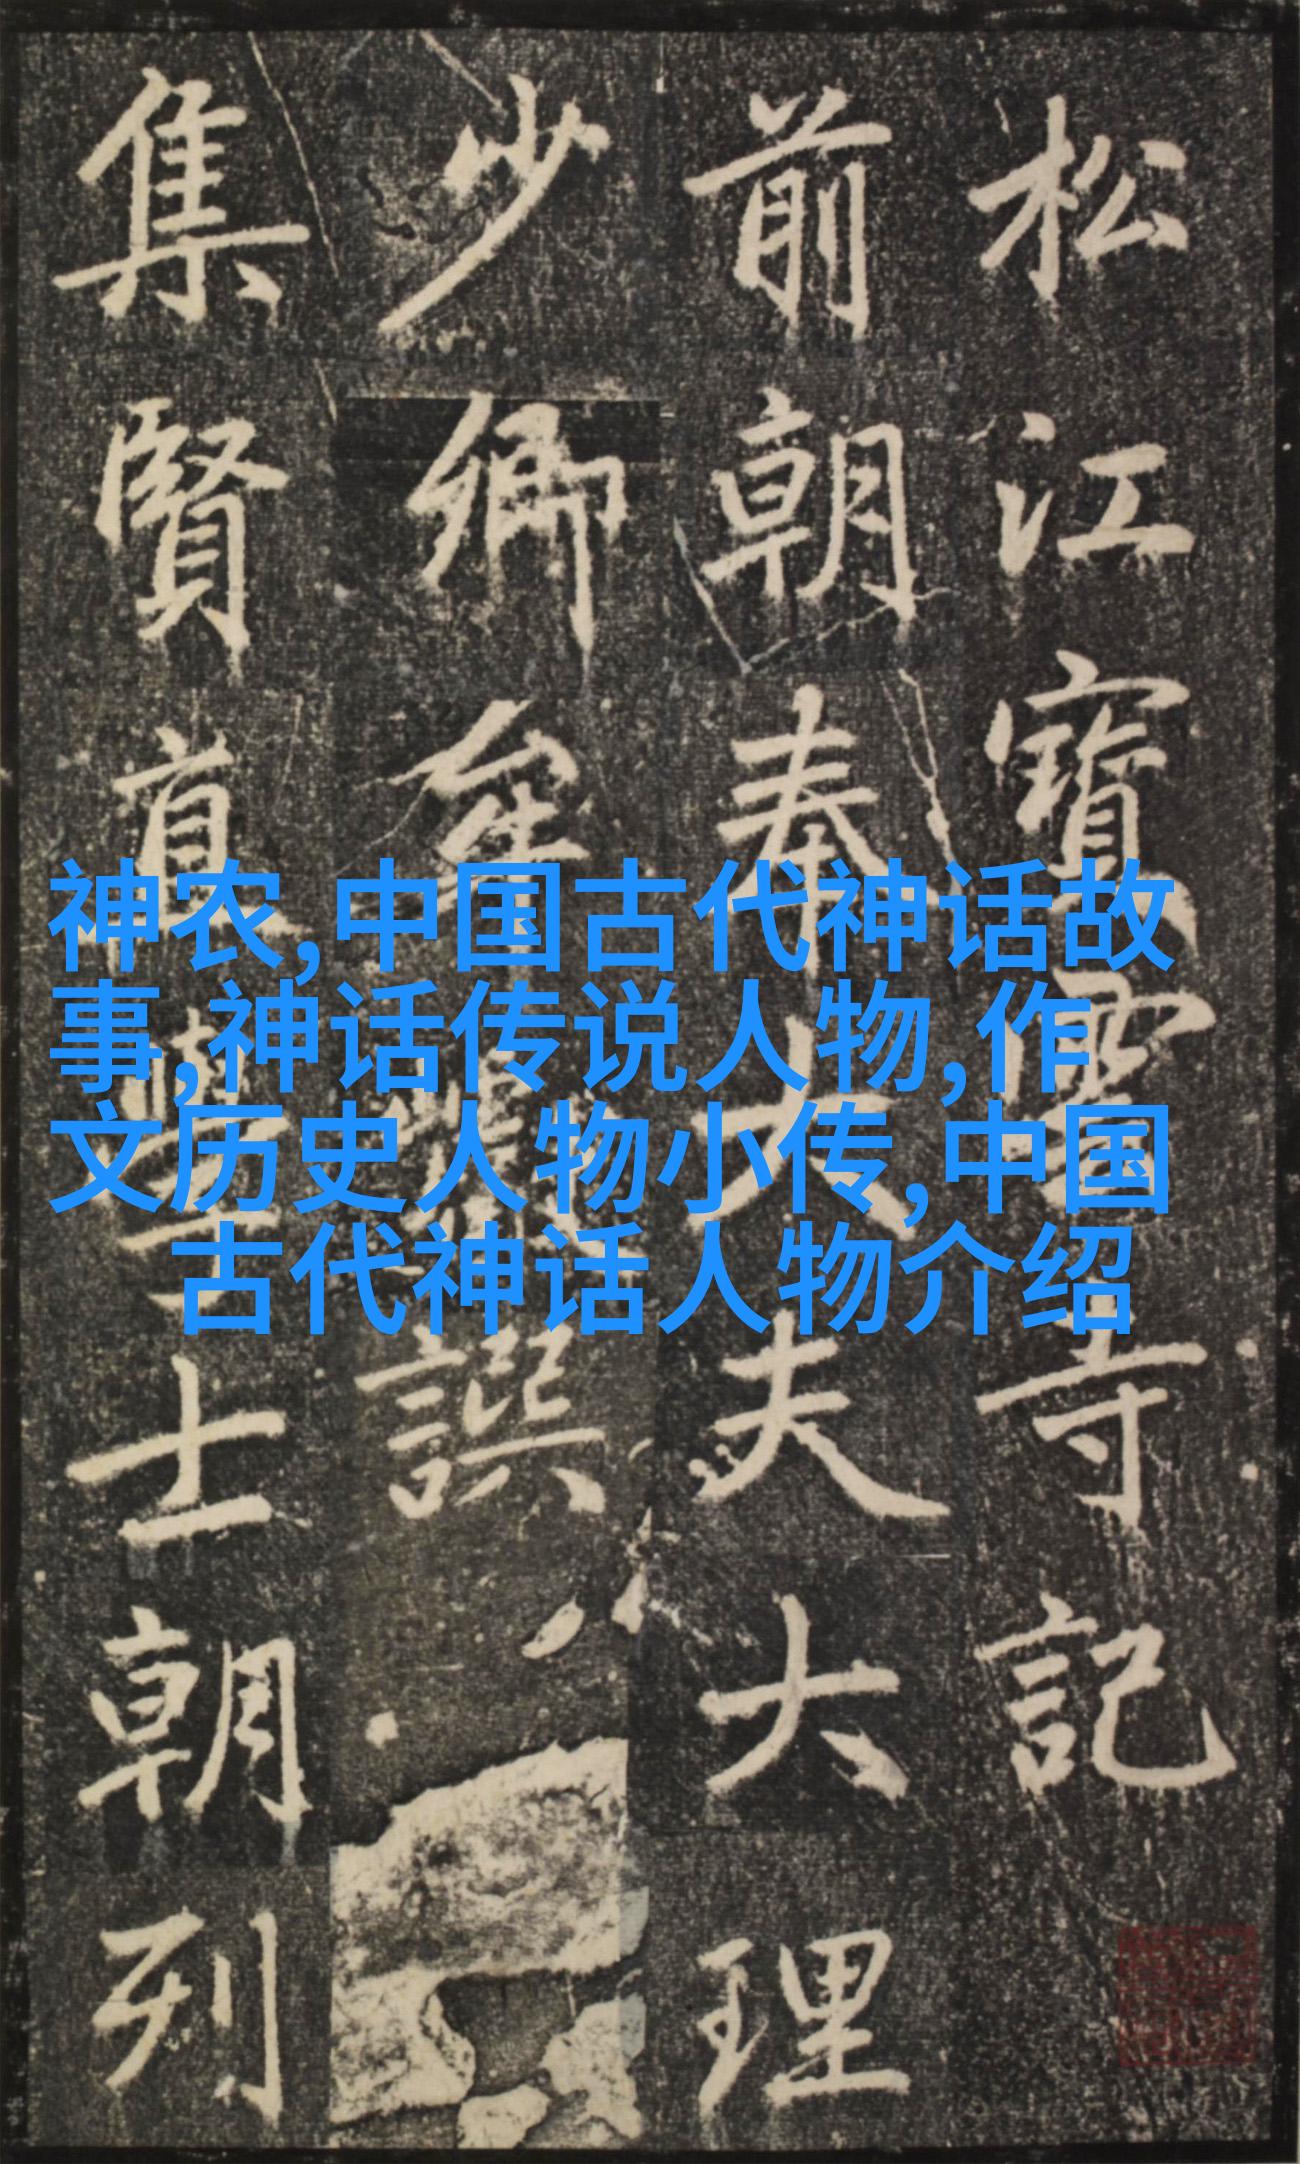 松江寶雲寺記
前朝奉大夫大理
少卿牟巘譔
集賢直學士朝列
神农,中国古代神话故
事,神话传说人物,作
文历史人物小传,中国
古代神话人物介绍